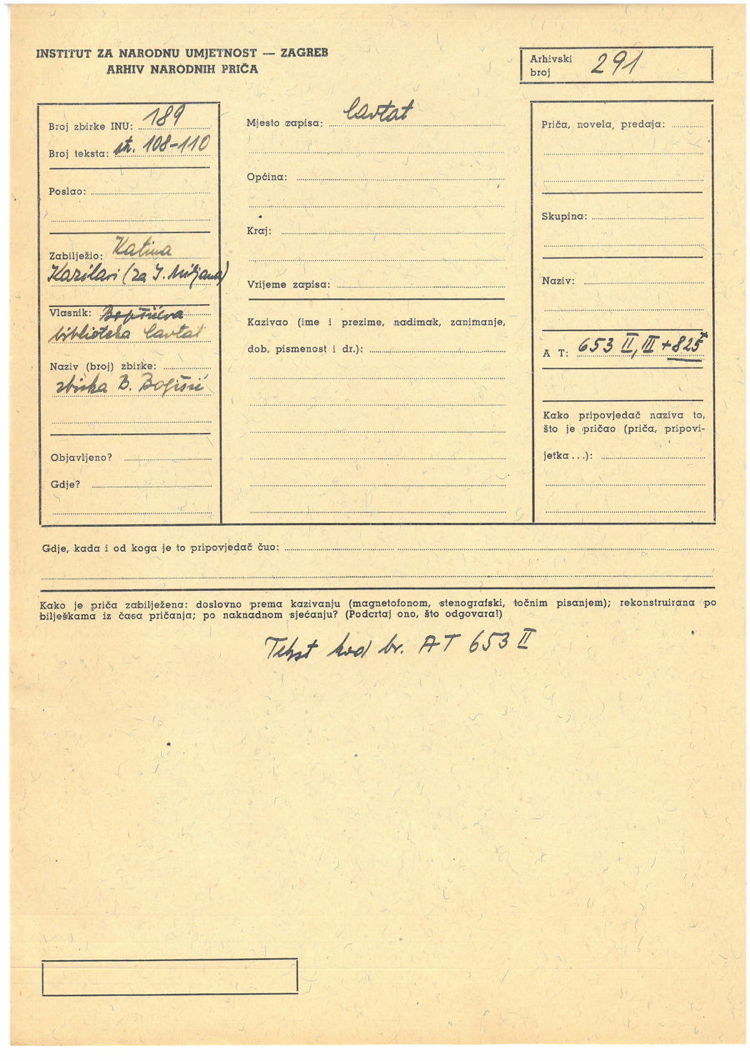 INSTITUT ZA NARODNU UMJETNOST — ZAGREB
ARHIV NARODNIH PRIČA
Arhivski broj 291
Broj zbirke INU: 189
Broj teksta: str. 108-110
Poslao:
Zabilježio: Katina
Kazilari (za I. Miljana)
Vlasnik:
biblioteka Cavtat
Naziv (broj) zbirke:
zbirka B. Bogišić
Objavljeno?
Gdje?
Mjesto zapisa: Cavtat
Općina:
Kraj:
Vrijeme zapisa:
Kazivao (ime i prezime, nadimak, zanimanje,
dob, pismenost i dr.):
Priča, novela, predaja:
Skupina:
Naziv:
A T: 653 II, III + 825*
Kako pripovjedač naziva to,
što je pričao (priča, pripovi-
jetka...):
Gdje, kada i od koga je to pripovjedač čuo:
Kako je priča zabilježena: doslovno prema kazivanju (magnetofonom, stenografski, točnim pisanjem); rekonstruirana po
bilješkama iz časa pričanja; po naknadnom sjećanju? (Podcrtaj ono, što odgovara!)
Tekst kod br. AT 653 II